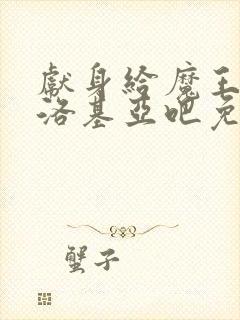 獻身給魔王
洛基亞吧免
蟹子